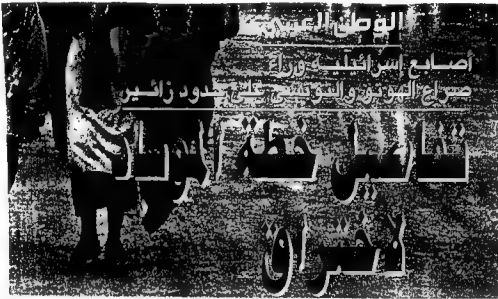 الوطن العربي
أصابع إسرائيلية وراء
صراع الهوتو والتوتسي على حدود زائير
تفاصيل خطة الموساد
لاختراق